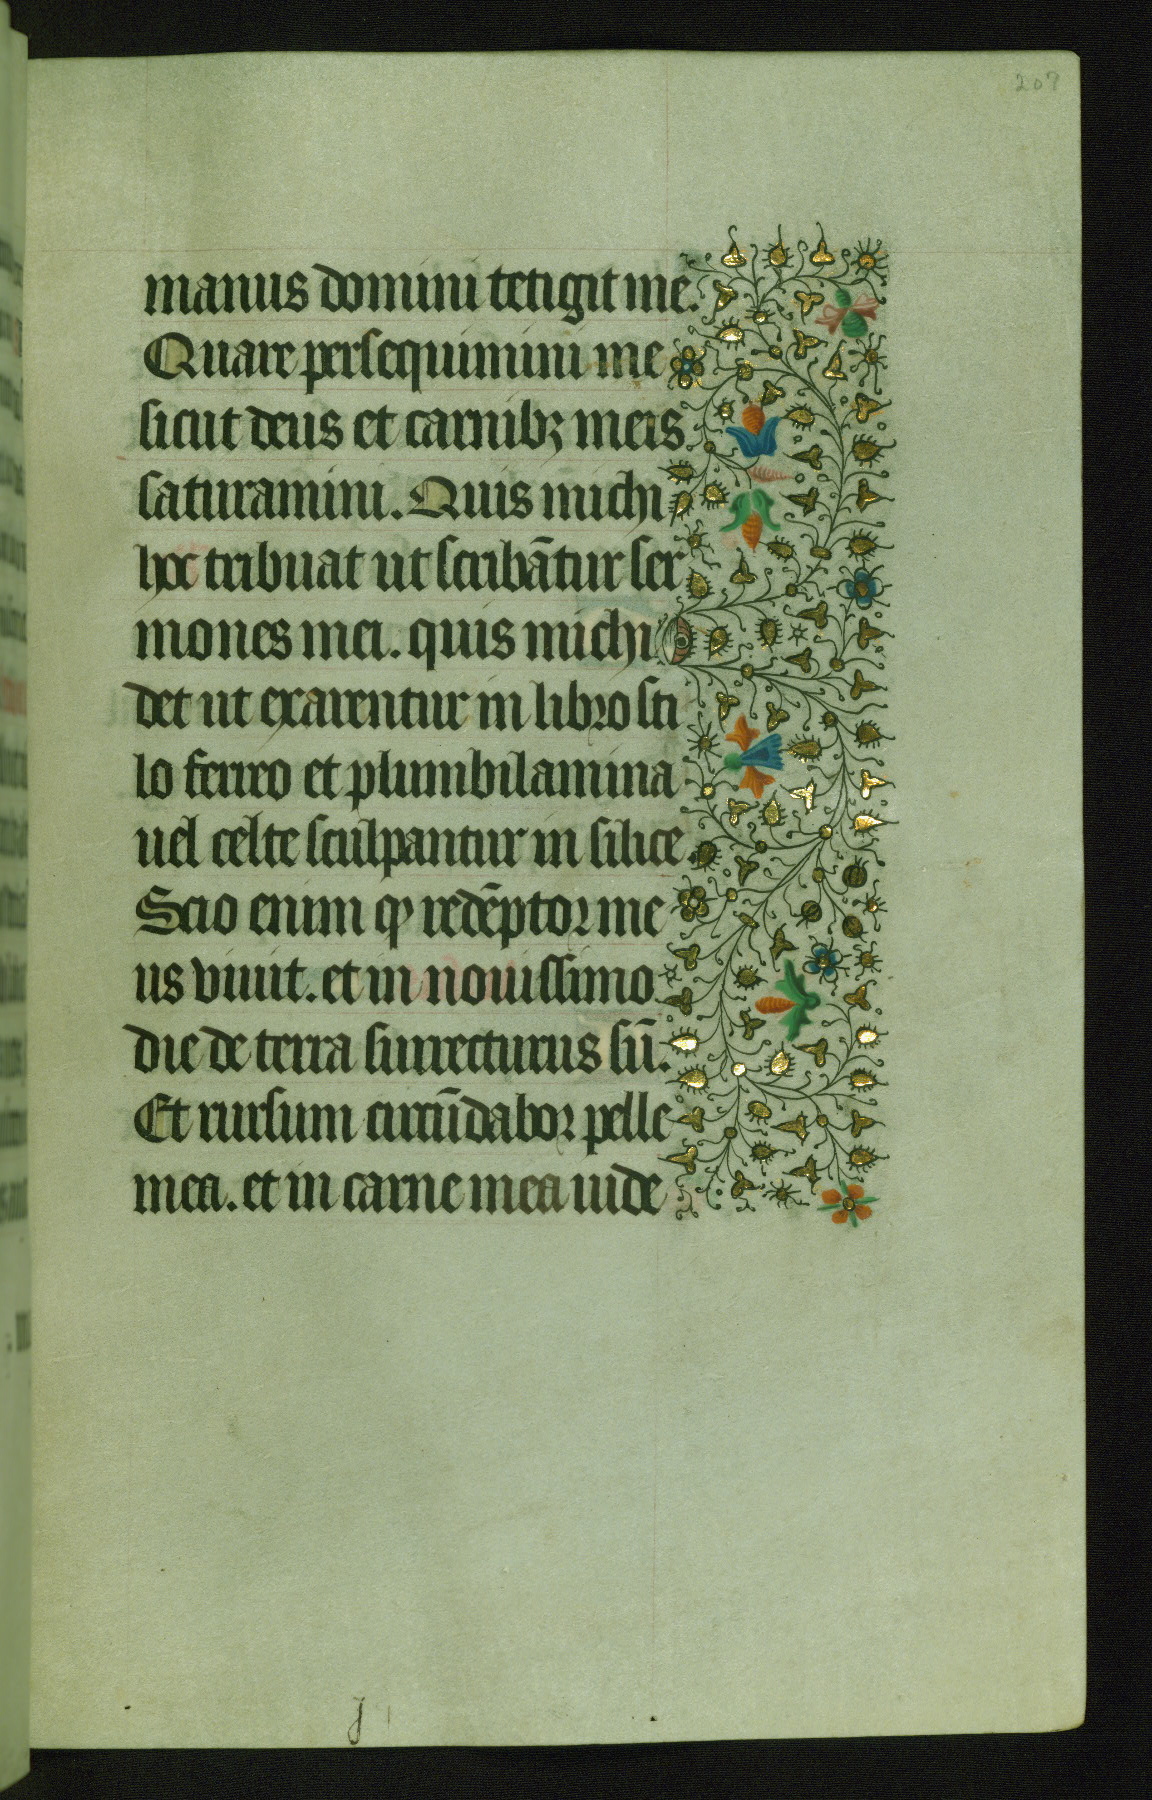 207
manus domini tetigit me.
Quare persequimini me
sicut deus et carnibꝫ meis
saturamini. Quis michi
hoc tribuat ut scribātur ser
mones mei. quis michi
det ut exarentur in libro sti
lo ferreo et plumbi lamina
uel celte sculpantur in silice.
Scio enim ꝙ redēptor me
us viuit. et in nouissimo
die de terra surrecturus sū.
Et rursum circūdabor pelle
mea. et in carne mea uide